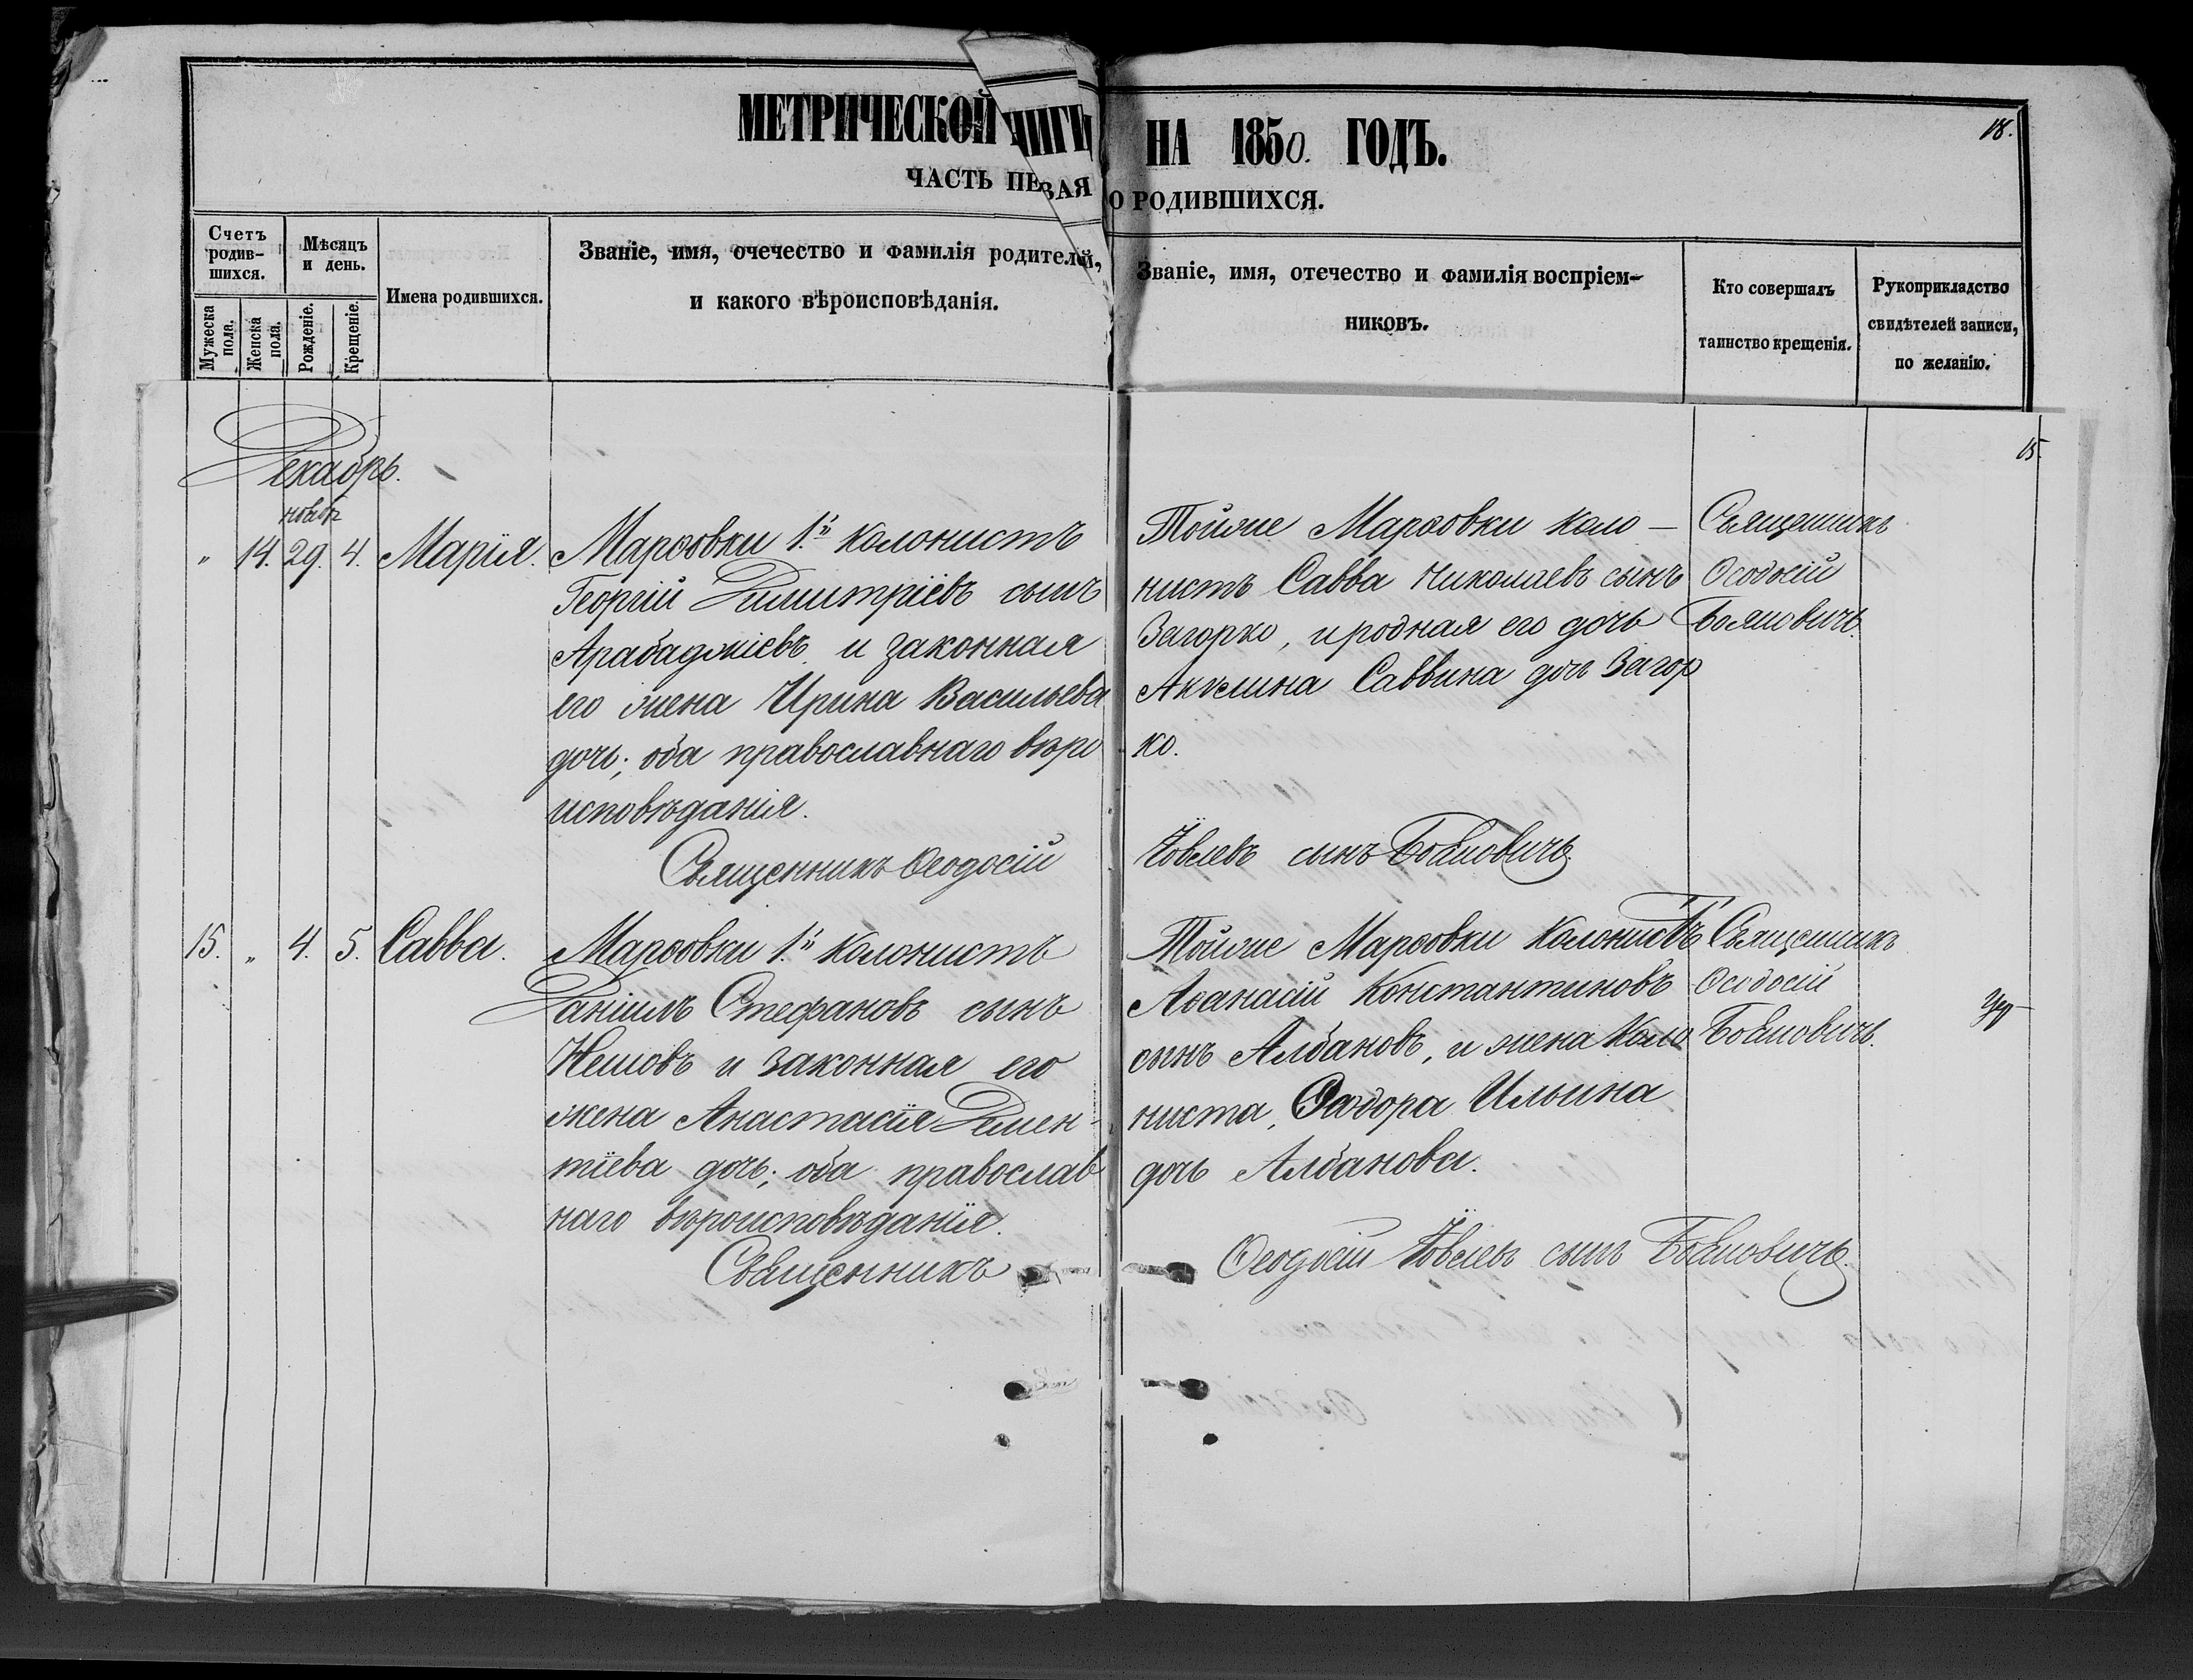 МЕТРИЧЕСКОЙ КНИГИ НА 1850. ГОДЪ.
18.
ЧАСТЬ ПЕРВАЯ О РОДИВШИХСЯ.
Счетъ родив-
шихся.
Мужеска пола.
Женска пола.
Мѣсяцъ и день.
Рожденіе.
Крещеніе.
Имена родившихся.
Званіе, имя, очечество и фамилія родителей,
и какого вѣроисповѣданія.
Званіе, имя, отечество и фамилія воспріем-
никовъ.
Кто совершалъ
таинство крещенія.
Рукоприкладство
свидѣтелей записи,
по желанію.
15.
Декабрь.
ноябр
" 14. 29. 4. Марія.
Марѳовки 1.й колонистъ
Георгій Димитріевъ сынъ
Арабаджіевъ и законная
его жена Ирина Васильева
дочь; оба православнаго вѣро
исповѣданія.
Священникъ Ѳеодосій
Тойже Марѳовки коло-
нистъ Савва Николаевъ сынъ
Загорко, и родная его дочь
Акѵлина Саввина дочь Загор
ко.
Іовлевъ сынъ Бояновичъ.
Священникъ
Ѳеодосій
Бояновичъ.
15. " 4. 5. Савва.
Марѳовки 1.й колонистъ
Даніилъ Стефановъ сынъ
Нешовъ и законная его
жена Анастасія Демен-
тіева дочь; оба православ
наго вѣроисповѣданія.
Священникъ
Тойже Марѳовки колонистъ
Аѳанасій Константиновъ
сынъ Албановъ, и жена коло
ниста, Ѳеодора Ильина
дочь Албанова.
Ѳеодосій Іовлевъ сынъ Бояновичъ.
Священникъ
Ѳеодосій
Бояновичъ.